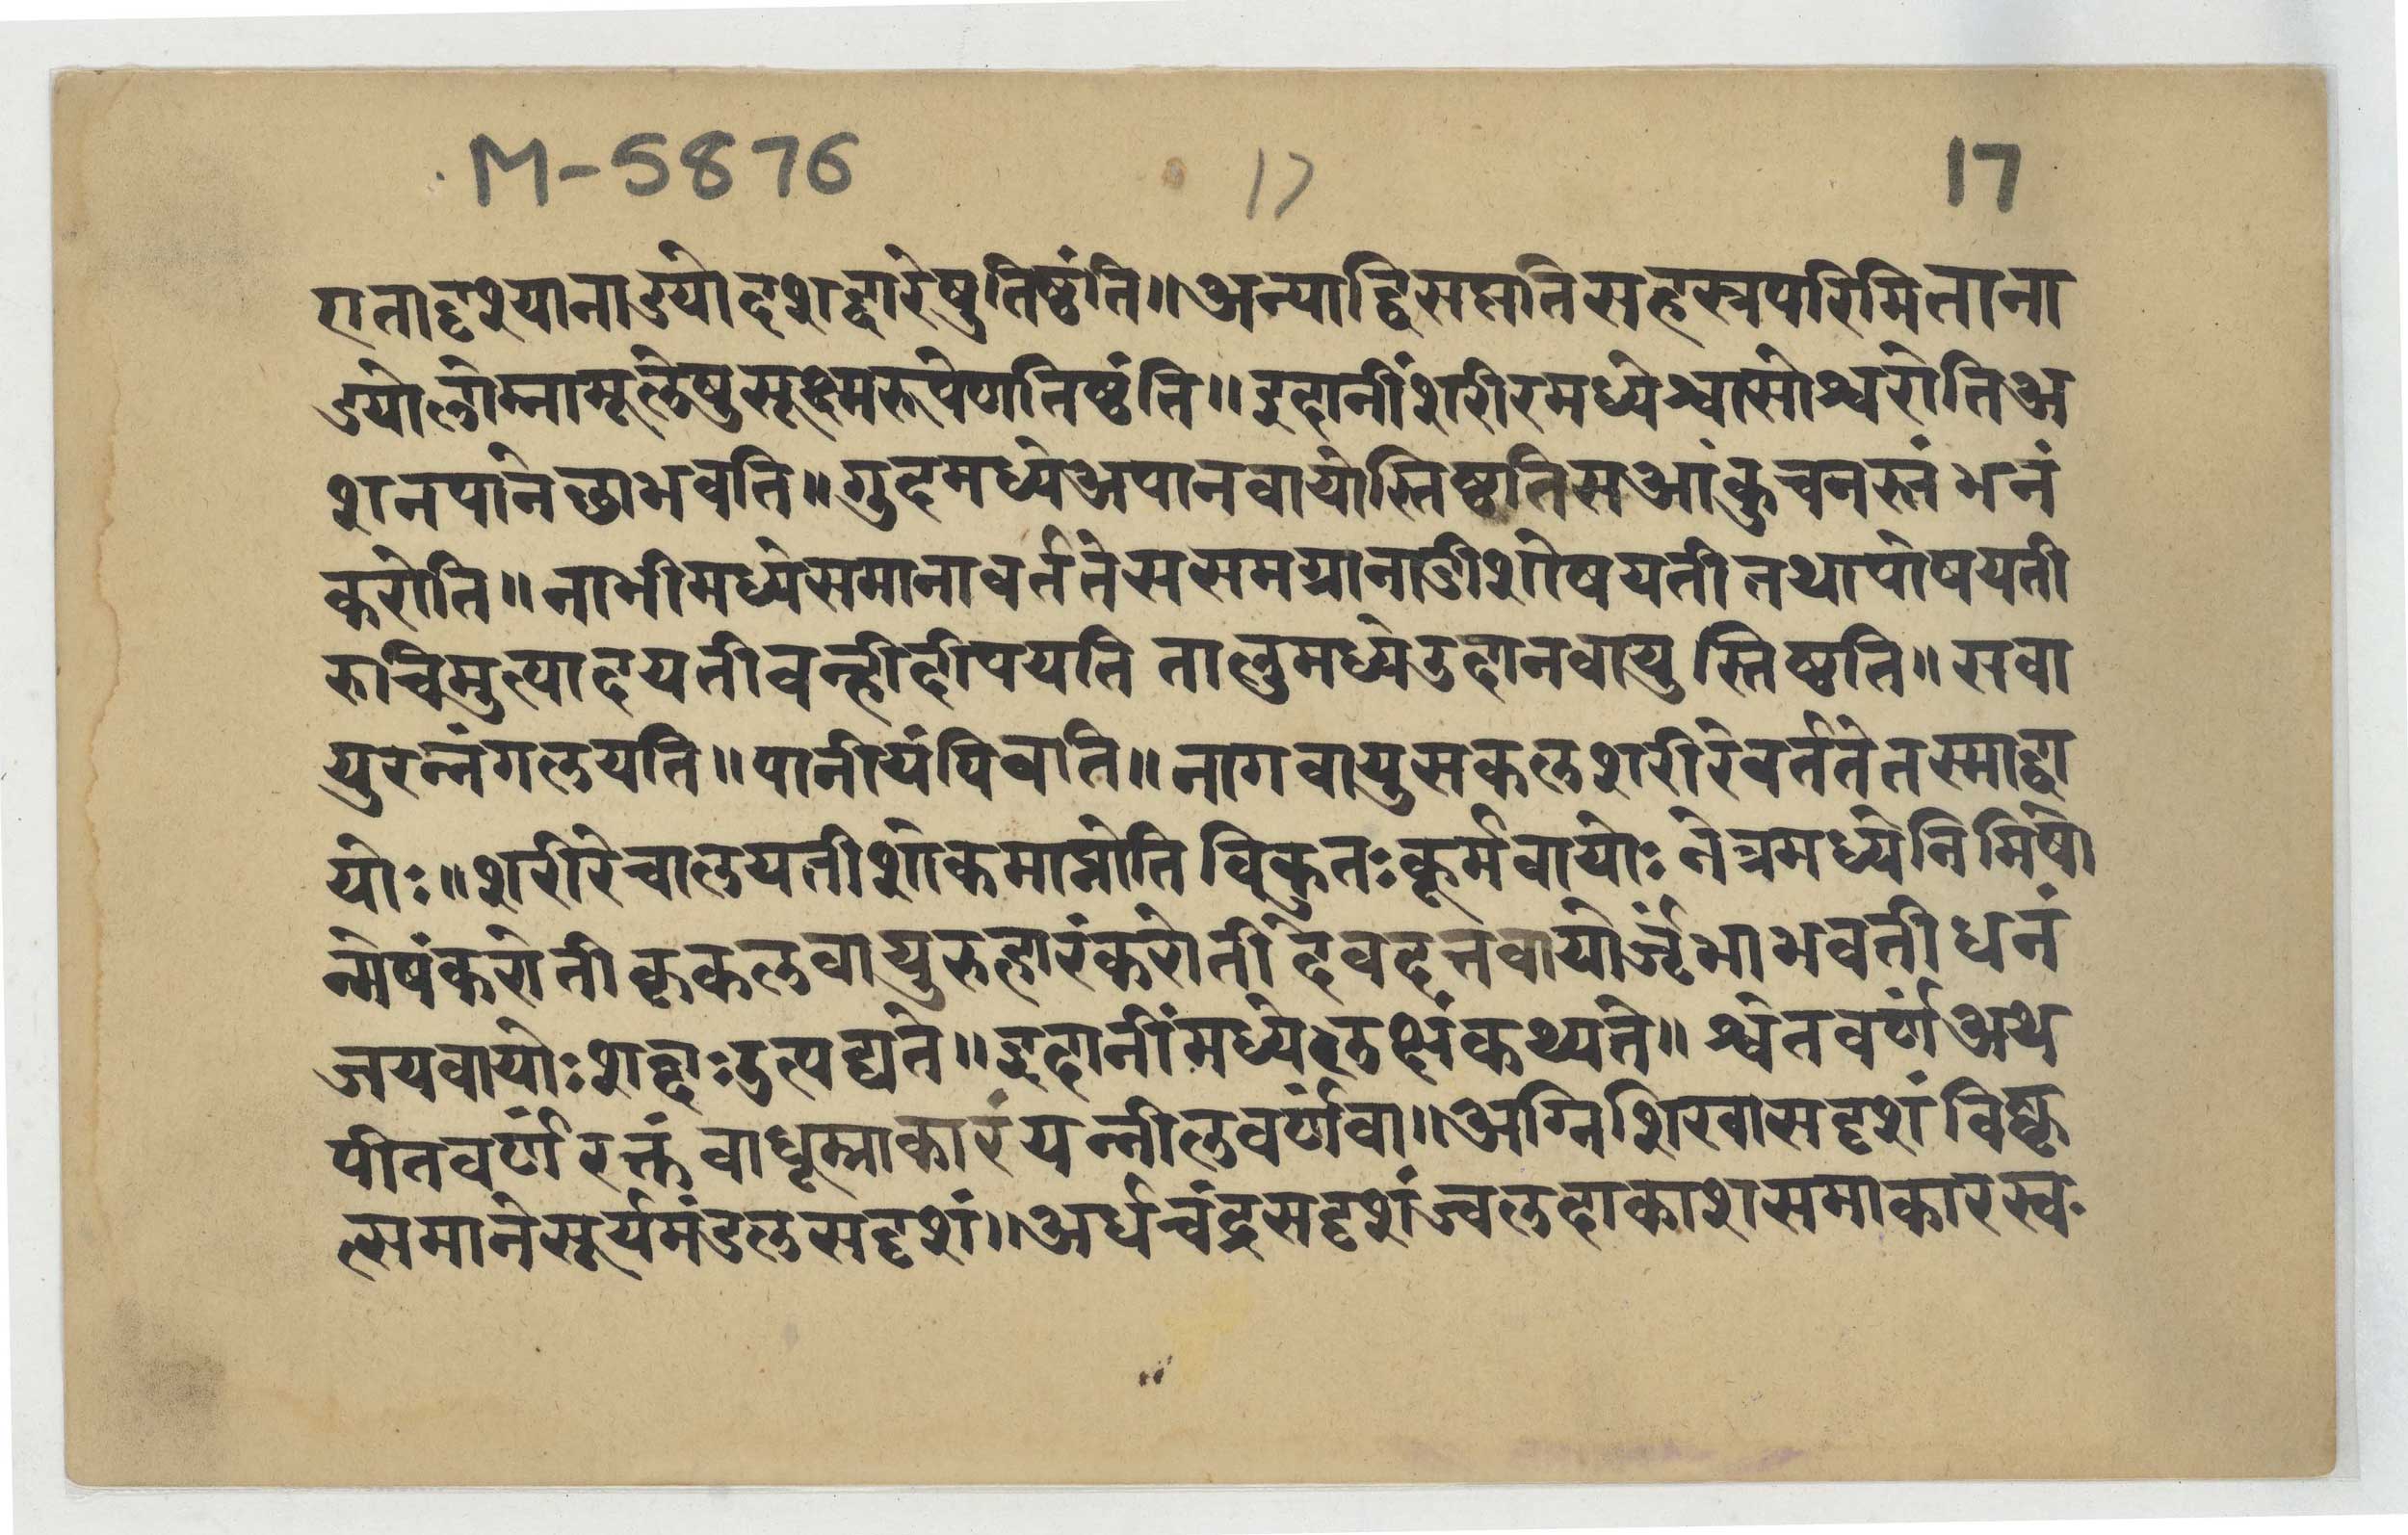 M-5876 17 17
रातादृश्यानाड्योदशद्वारेषुतिष्ठंति॥अन्याद्विसप्ततिसहस्त्रपरिमिताना
ड्योलोम्नामूलेषुसूक्ष्मरूपेणतिष्ठंति॥इदानींशरीरमध्येश्वासोश्वरोतिअ
शनपानेछाभवति॥गुदमध्येअपानवायोस्तिष्ठतिसआंकुचनस्तंभनं
करोति॥नाभीमध्येसमानावर्ततेससमग्रानाडीशोषयतीतथापोषयती
रुचिमुत्पादयतीवन्हीदीपयति तालुमध्येउदानवायु स्तिष्ठति॥सवा
युरन्नंगलयति॥पानीयंपिबति॥नागवायुसकलशरीरेवर्ततेतस्माद्वा
योः॥शरीरेचालयतीशोकमाप्नोति विकुतःकूर्मवायोः नेत्रमध्येनिमिषो
न्मेषंकरोती कृकलवायुरुद्गारंकरोती देवदत्तवायोर्जृंभाभवती धनं
जयवायोःशब्दःउत्पद्यते॥इदानींमध्येलक्ष्यंकथ्यते॥श्वेतवर्णंअथ
पीतवर्णंरक्तं वाधूम्राकारंयन्नीलवर्णंवा॥अग्निशिखासदृशं विद्यु
त्समानेसूर्यमंडलसदृशं॥अर्धचंद्रसदृशंज्वलदाकाशसमाकारस्व